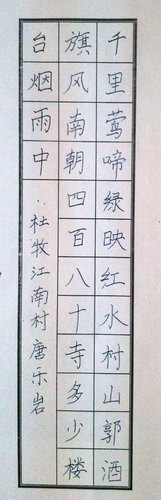 千里莺啼绿映红水村山郭酒
旗风南朝四百八十寺多少楼
台烟雨中：杜牧江南村唐乐岩